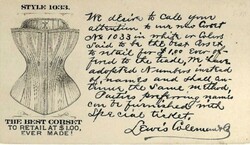 STYLE 1033.
THE BEST CORSET
TO RETAIL AT $1.00,
EVER MADE!
We desire to call your
attention to our new Corset
No 1033 in white or Colors
Said to be the best Corset
to retail for $1.00 Ever of-
fered to the trade, We have
adopted Numbers instead
of names and shall con-
tinue the same method,
Parties preferring names
can be furnished with
Special ticket.
Lewis Coleman & Co